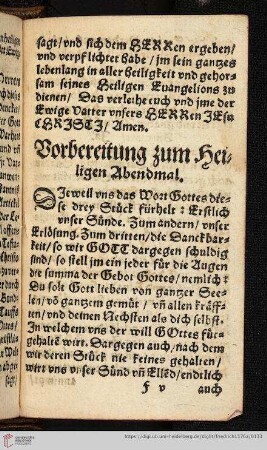 sagt/ vnd sich dem HERRen ergeben/
vnd verpflichtet habe/ jm sein gantzes
lebenlang in aller heiligkeit vnd gehor-
sam seines Heiligen Euangelions zu
dienen/ Das verleihe euch vnd jme der
Ewige Vatter vnsers HERRN JESu
CHRISTI/ Amen.
Vorbereitung zum Hei-
ligen Abendmal.
DJeweil vns das Wort Gottes die-
se drey Stück fürhelt: Erstlich
vnser Sünde. Zum andern/ vnser
Erlösung. Zum dritten/ die Danckbar-
keit/ so wir GOTT dargegen schuldig
sind/ so stell jm ein jeder für die Augen
die summa der Gebot Gottes/ nemlich:
Du solt Gott lieben von gantzer See-
len/ vō gantzem gemüt/ vñ allen kräff-
ten/ vnd deinen Nechsten als dich selbst.
In welchem vns der will GOttes für-
gehalten wirt. Dargegen auch/ nach dem
wir deren Stück nie keines gehalten/
wirt vns vnser Sünd vñ Ellēd/ endtlich
f v auch